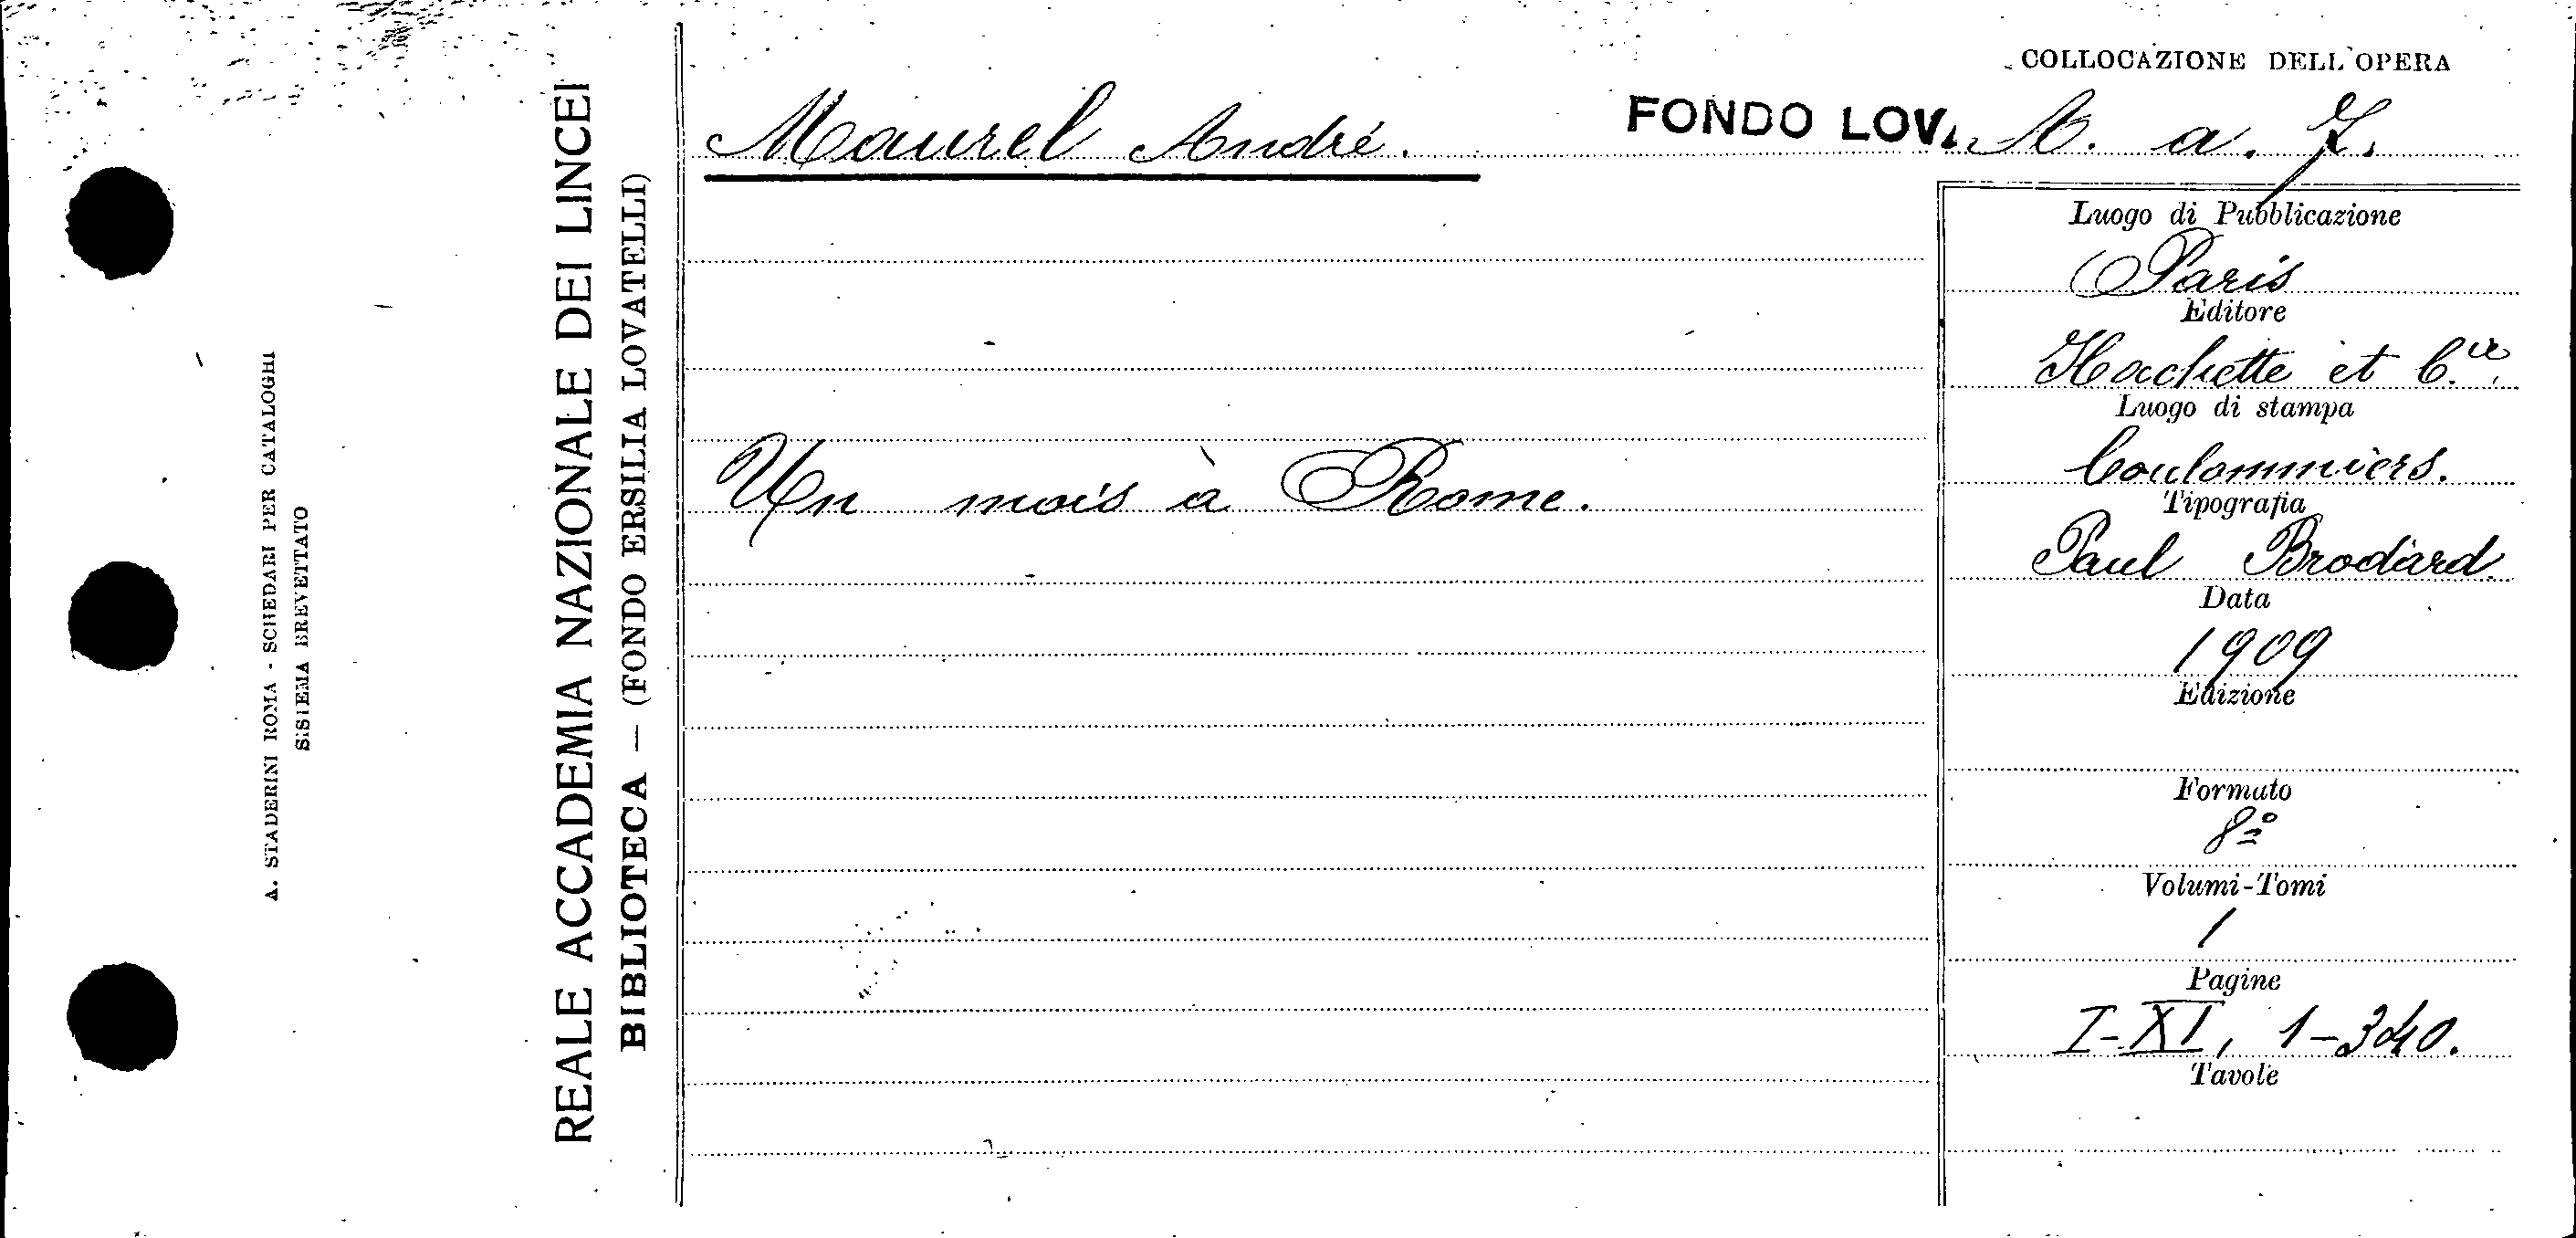 A. STADERINI ROMA - SCHEDARI PER CATALOGHI
SISTEMA BREVETTATO
REALE ACCADEMIA NAZIONALE DEI LINCEI
BIBLIOTECA — (FONDO ERSILIA LOVATELLI)
Maurel André.
Un mois à Rome.
COLLOCAZIONE DELL'OPERA
FONDO LOV. A. a. 7.
Luogo di Pubblicazione
Paris
Editore
Hachette et C.ie
Luogo di stampa
Coulommiers.
Tipografia
Paul Brodard
Data
1909
Edizione
Formato
8º
Volumi-Tomi
1
Pagine
I-XI, 1-340.
Tavole